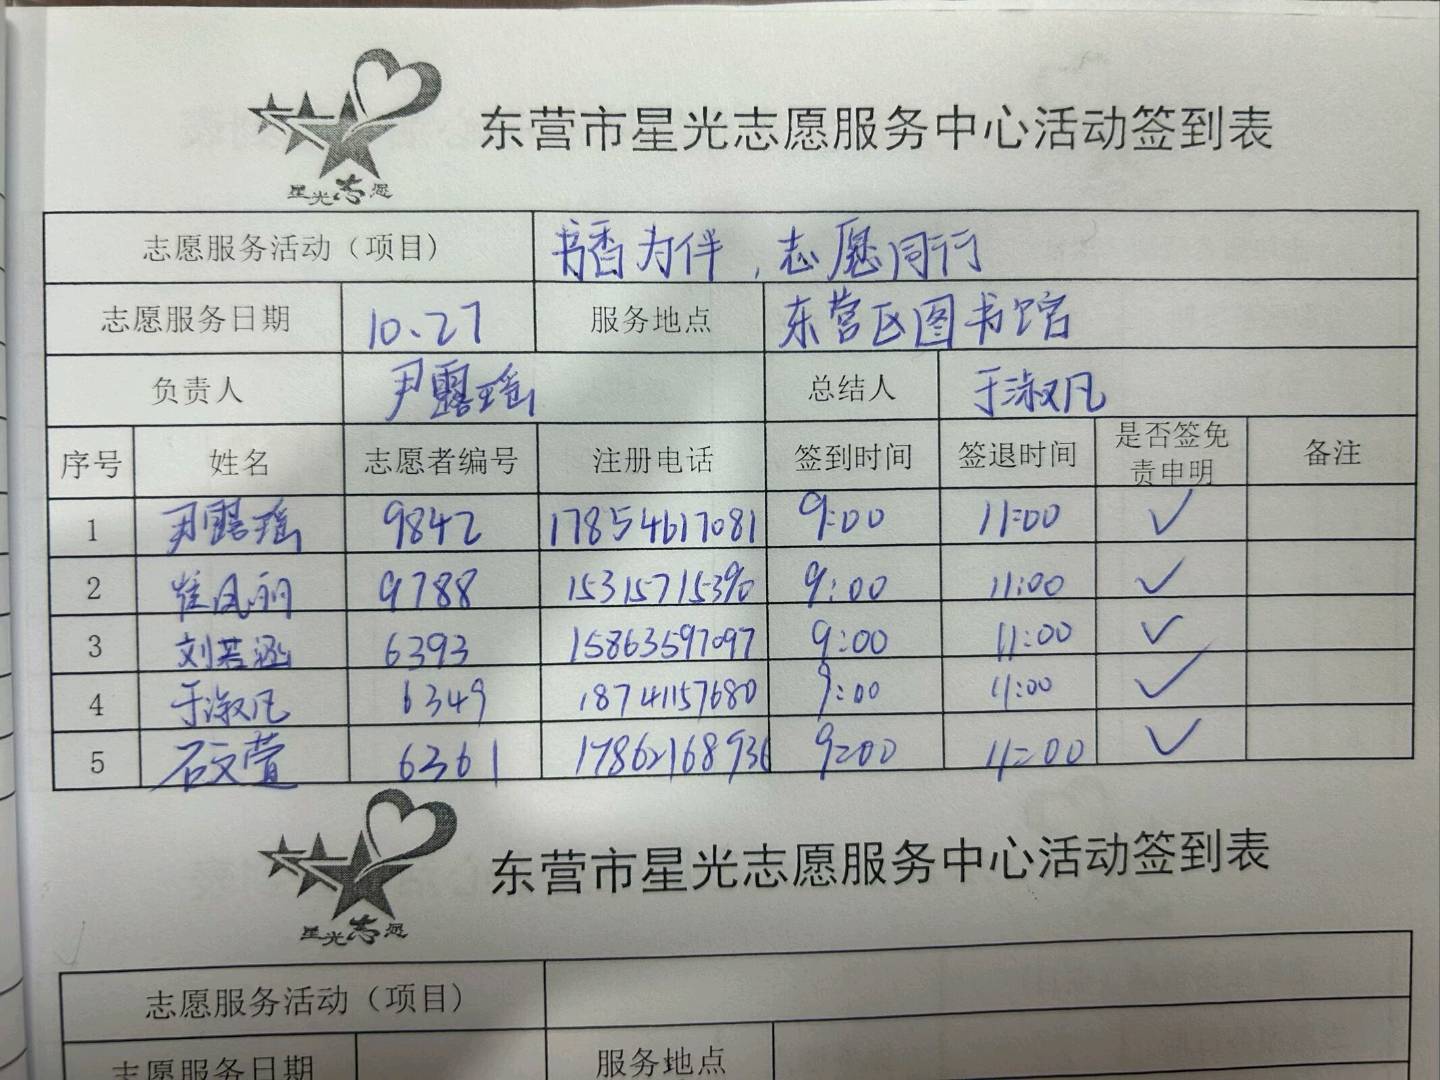 星光志愿
东营市星光志愿服务中心活动签到表
志愿服务活动（项目） 书香为伴，志愿同行
志愿服务日期 10.27 服务地点 东营区图书馆
负责人 尹露瑶 总结人 于淑凡
序号 姓名 志愿者编号 注册电话 签到时间 签退时间 是否签免责申明 备注
1 尹露瑶 9842 17854617081 9:00 11:00 ✓
2 崔凤丽 9788 15315715390 9:00 11:00 ✓
3 刘若涵 6393 15863597097 9:00 11:00 ✓
4 于淑凡 6349 18741157680 9:00 11:00 ✓
5 石文萱 6361 17862168936 9:00 11:00 ✓
星光志愿
东营市星光志愿服务中心活动签到表
志愿服务活动（项目）
志愿服务日期 服务地点